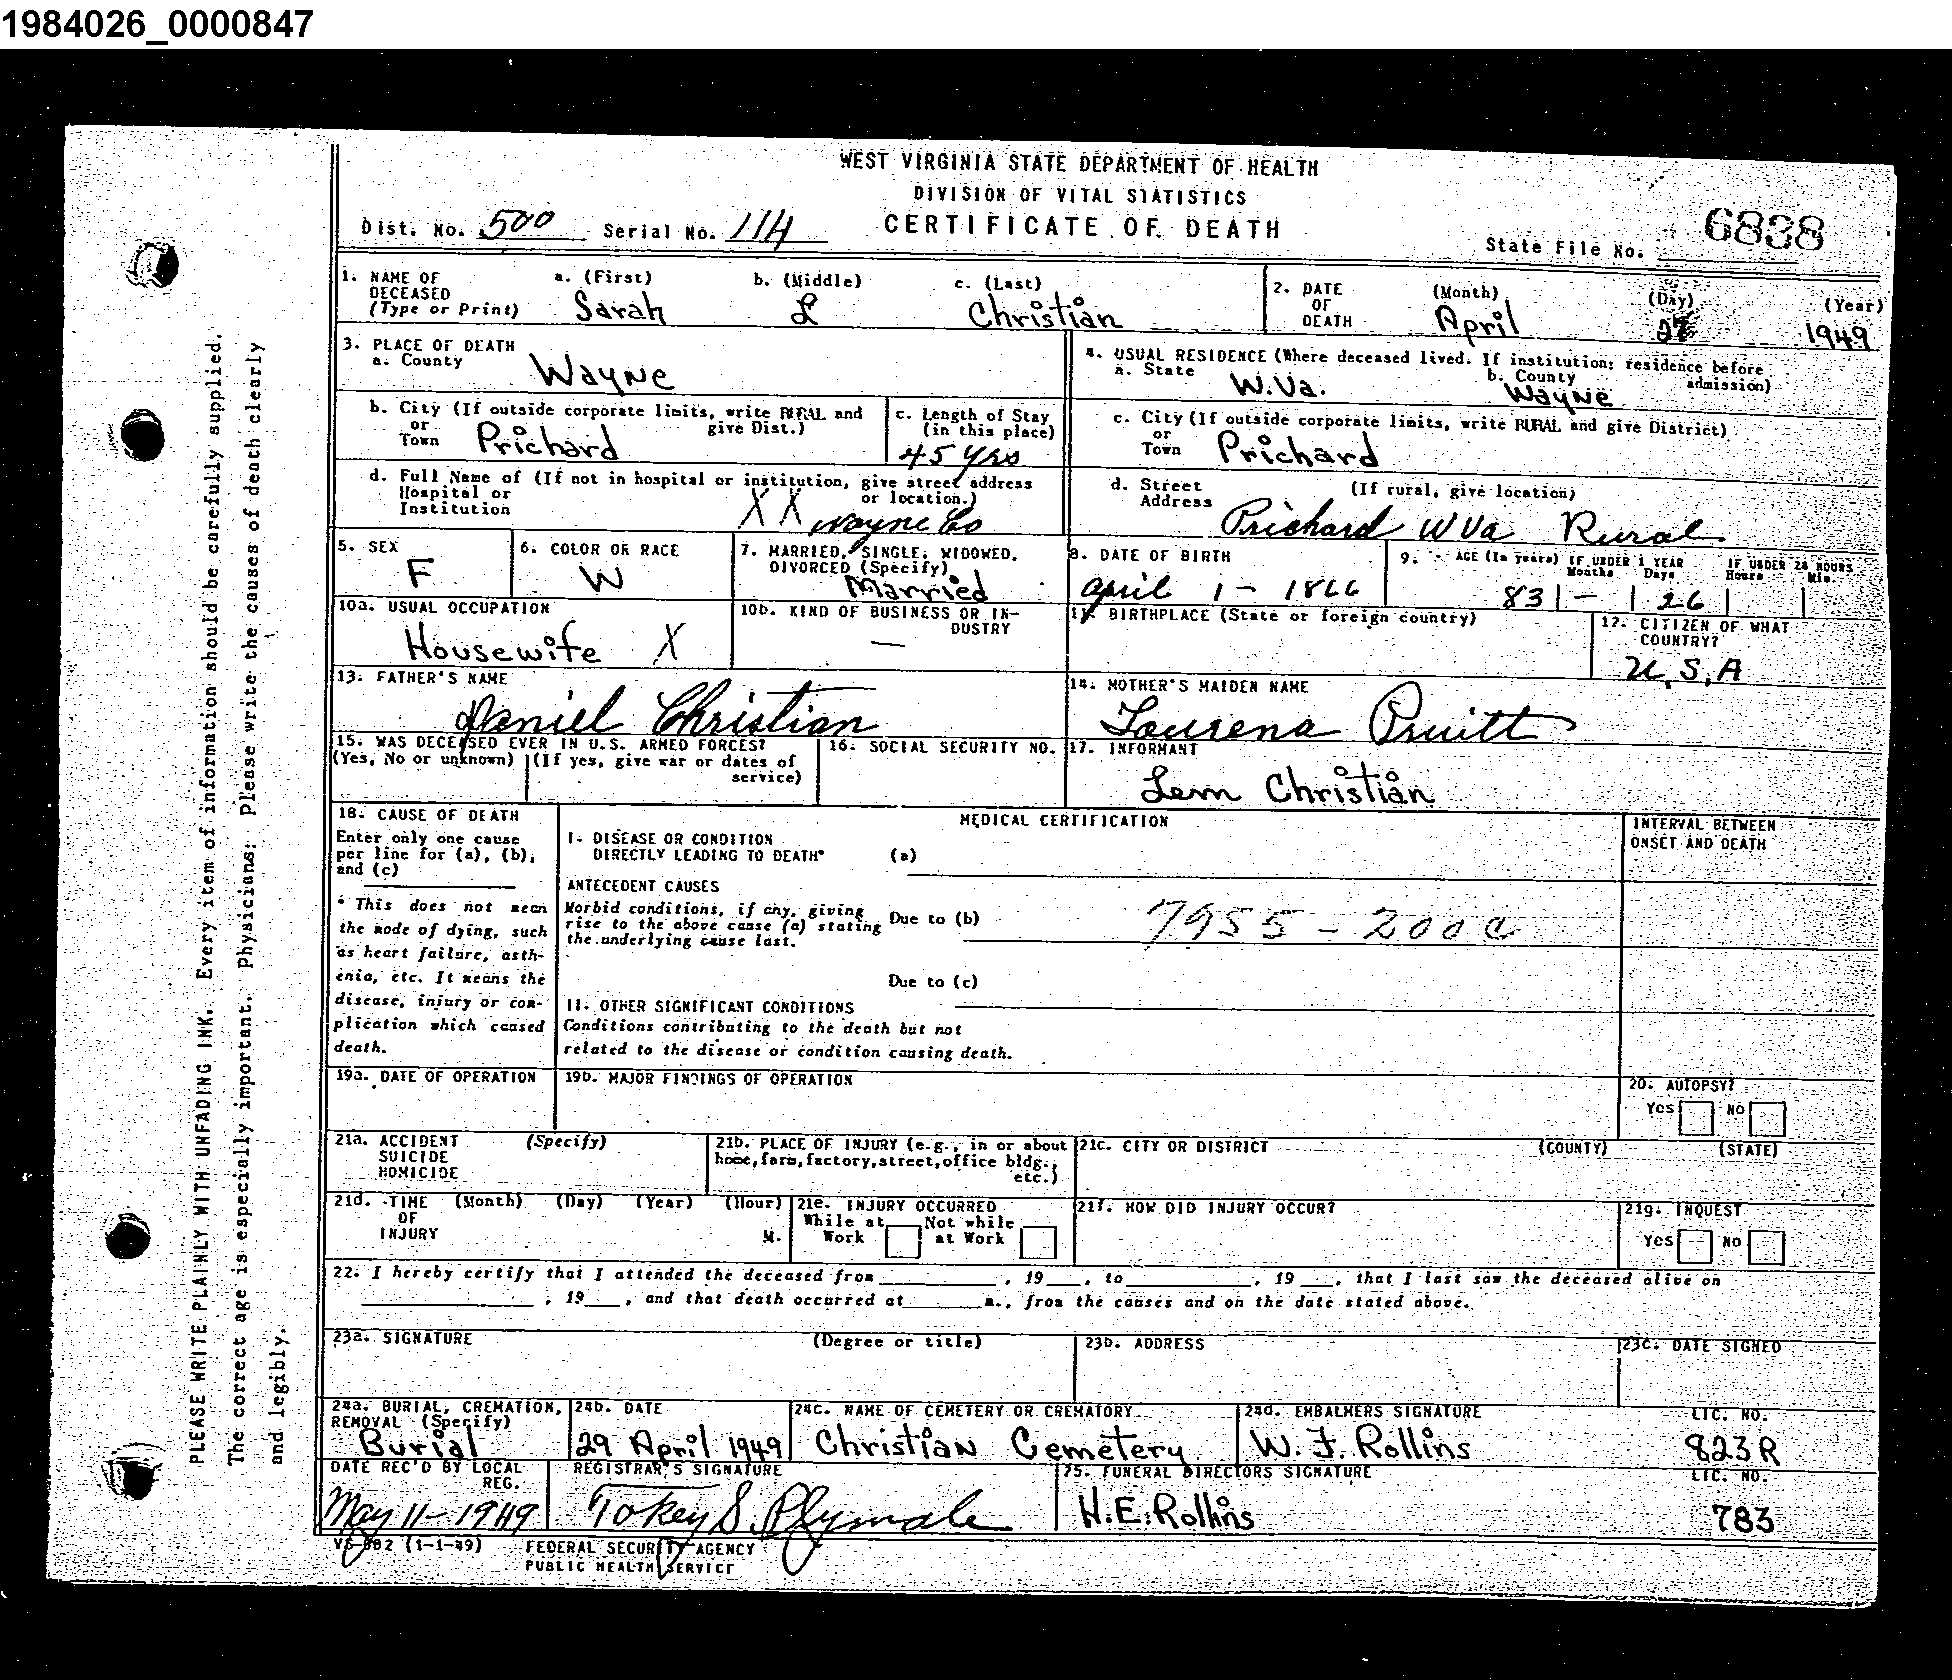 1984026_0000847
WEST VIRGINIA STATE DEPARTMENT OF HEALTH
DIVISION OF VITAL STATISTICS
Dist. No. 500 Serial No. 114 CERTIFICATE OF DEATH
State File No. 6838
1. NAME OF DECEASED (Type or Print) a. (First) Sarah b. (Middle) L c. (Last) Christian
2. DATE OF DEATH (Month) April (Day) 27 (Year) 1949
3. PLACE OF DEATH
a. County Wayne
4. USUAL RESIDENCE (Where deceased lived. If institution; residence before admission)
a. State W.Va. b. County Wayne
b. City (If outside corporate limits, write RURAL and give Dist.) or Town Prichard
c. Length of Stay (in this place) 45 yrs
c. City (If outside corporate limits, write RURAL and give District) or Town Prichard
d. Full Name of (If not in hospital or institution, give street address or location.) Hospital or Institution XX Wayne Co
d. Street Address (If rural, give location) Prichard W Va Rural
5. SEX F
6. COLOR OR RACE W
7. MARRIED, SINGLE, WIDOWED, DIVORCED (Specify) Married
8. DATE OF BIRTH April 1 - 1866
9. AGE (In years) 83 IF UNDER 1 YEAR Months - Days 26 IF UNDER 24 HOURS Hours Min.
10a. USUAL OCCUPATION Housewife X
10b. KIND OF BUSINESS OR INDUSTRY —
11. BIRTHPLACE (State or foreign country)
12. CITIZEN OF WHAT COUNTRY? U.S.A
13. FATHER'S NAME Daniel Christian
14. MOTHER'S MAIDEN NAME Laurena Pruitt
15. WAS DECEASED EVER IN U.S. ARMED FORCES? (Yes, No or unknown) (If yes, give war or dates of service)
16. SOCIAL SECURITY NO.
17. INFORMANT Lem Christian
18. CAUSE OF DEATH
Enter only one cause per line for (a), (b), and (c)
* This does not mean the mode of dying, such as heart failure, asthenia, etc. It means the disease, injury or complication which caused death.
MEDICAL CERTIFICATION
INTERVAL BETWEEN ONSET AND DEATH
I. DISEASE OR CONDITION DIRECTLY LEADING TO DEATH* (a)
ANTECEDENT CAUSES
Morbid conditions, if any, giving rise to the above cause (a) stating the underlying cause last. Due to (b) 7955 - 200 a
Due to (c)
II. OTHER SIGNIFICANT CONDITIONS
Conditions contributing to the death but not related to the disease or condition causing death.
19a. DATE OF OPERATION
19b. MAJOR FINDINGS OF OPERATION
20. AUTOPSY? Yes No
21a. ACCIDENT SUICIDE HOMICIDE (Specify)
21b. PLACE OF INJURY (e.g., in or about home, farm, factory, street, office bldg., etc.)
21c. CITY OR DISTRICT (COUNTY) (STATE)
21d. TIME OF INJURY (Month) (Day) (Year) (Hour) M.
21e. INJURY OCCURRED While at Work Not while at Work
21f. HOW DID INJURY OCCUR?
21g. INQUEST Yes No
22. I hereby certify that I attended the deceased from , 19 , to , 19 , that I last saw the deceased alive on
, 19 , and that death occurred at m., from the causes and on the date stated above.
23a. SIGNATURE (Degree or title)
23b. ADDRESS
23c. DATE SIGNED
24a. BURIAL, CREMATION, REMOVAL (Specify) Burial
24b. DATE 29 April 1949
24c. NAME OF CEMETERY OR CREMATORY Christian Cemetery
24d. EMBALMERS SIGNATURE W. F. Rollins LIC. NO. 823R
DATE REC'D BY LOCAL REG. May 11-1949
REGISTRAR'S SIGNATURE Tokey S. Plymale
25. FUNERAL DIRECTORS SIGNATURE H.E. Rollins LIC. NO. 783
VS-002 (1-1-49) FEDERAL SECURITY AGENCY
PUBLIC HEALTH SERVICE
PLEASE WRITE PLAINLY WITH UNFADING INK. Every item of information should be carefully supplied.
The correct age is especially important. Physicians: please write the causes of death clearly
and legibly.